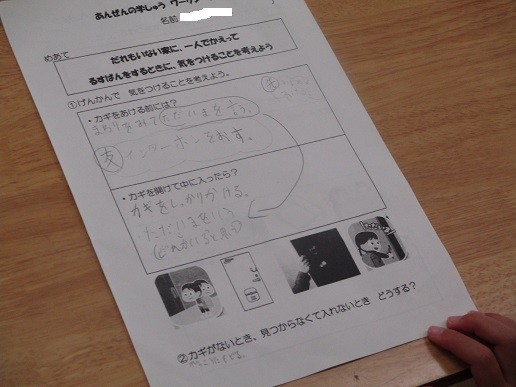 あんぜんの学しゅう ワーク
名前
めあて
だれもいない家に、一人でかえって
るすばんをするときに、気をつけることを考えよう
①げんかんで 気をつけることを考えよう。
・カギをあける前には?
まわりをみてただいまを言う。
友 インターホンをおす。
・カギを開けて中に入ったら?
カギをしっかりかける。
ただいまをいう
②カギがないとき、見つからなくて入れないとき どうする?